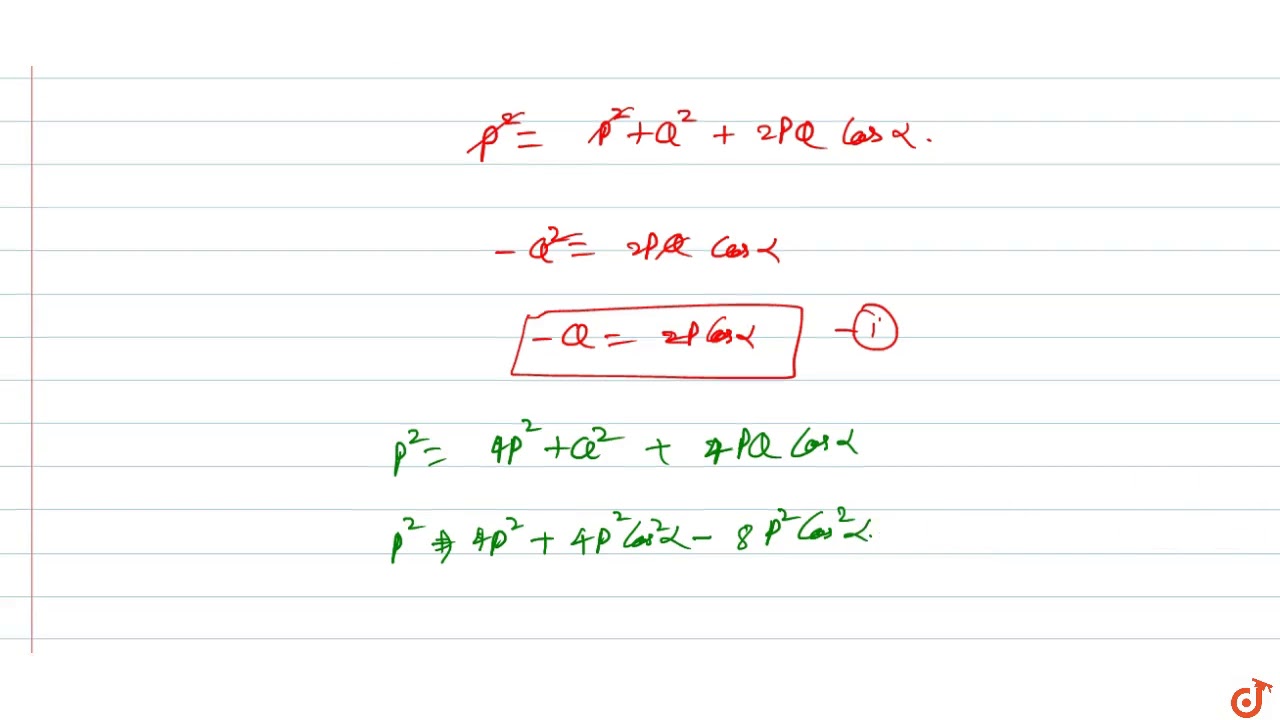 P² = P² + Q² + 2PQ Cos α.
- Q² = 2PQ Cos α
- Q = 2P Cos α - (i)
P² = 4P² + Q² + 4PQ Cos α
P² = 4P² + 4P² Cos² α - 8 P² Cos² α.